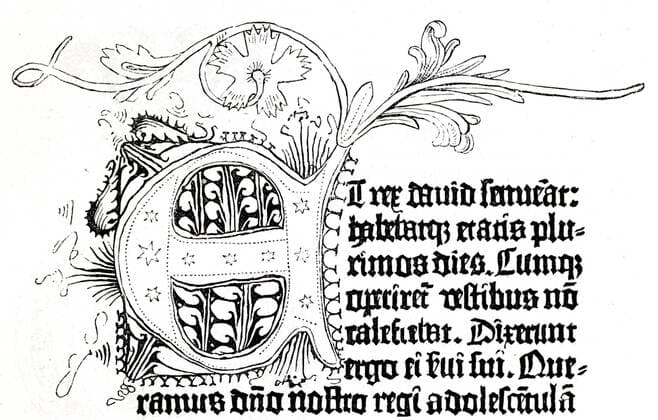 ET rex dauid senuẽat:
habebatqꝫ etatis plu-
rimos dies. Cumqꝫ
operiret᷑ vestibus nõ
calefiebat. Dixerunt
ergo ei s̃ui sui. Que-
ramus dño nostro regi adolescẽtulã